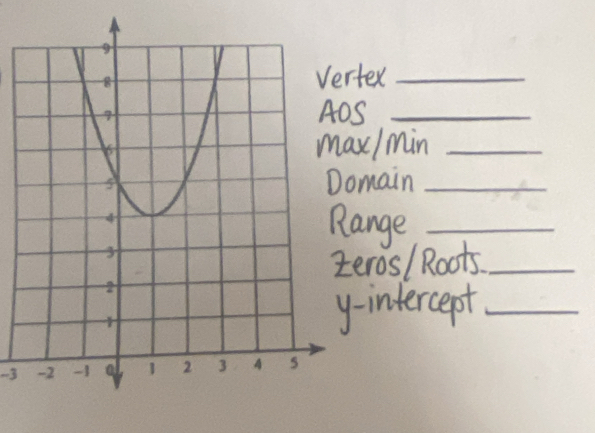 9
8
7
6
5
4
3
2
1
-3 -2 -1 0 1 2 3 4 5
Vertex
AOS
Max/Min
Domain
Range
Zeros/Roots
y-intercept